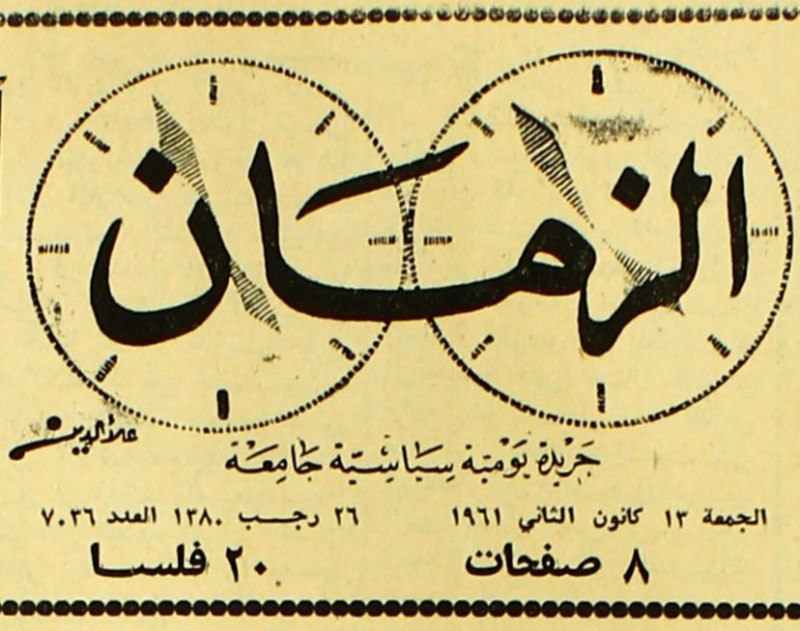 الزمان
علاء الدين
جَرِيْدة يَوْمِيّة سِيَاسِيّة جَامِعَة
الجمعة ١٣ كانون الثاني ١٩٦١ ٢٦ رجب ١٣٨٠ العدد ٧٠٣٦
٨ صفحات ٢٠ فلسا